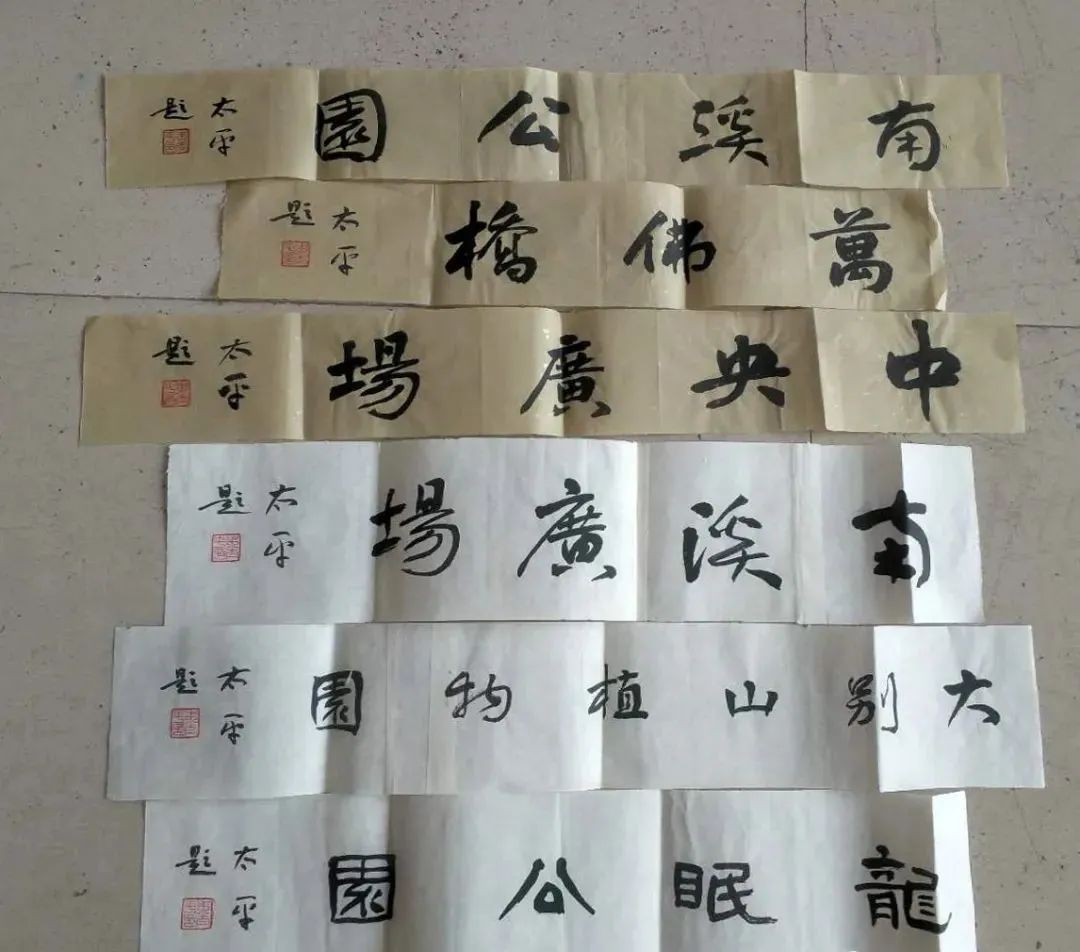 南溪公園 太平題
萬佛橋 太平題
中央廣場 太平題
南溪廣場 太平題
大别山植物園 太平題
龍眠公園 太平題